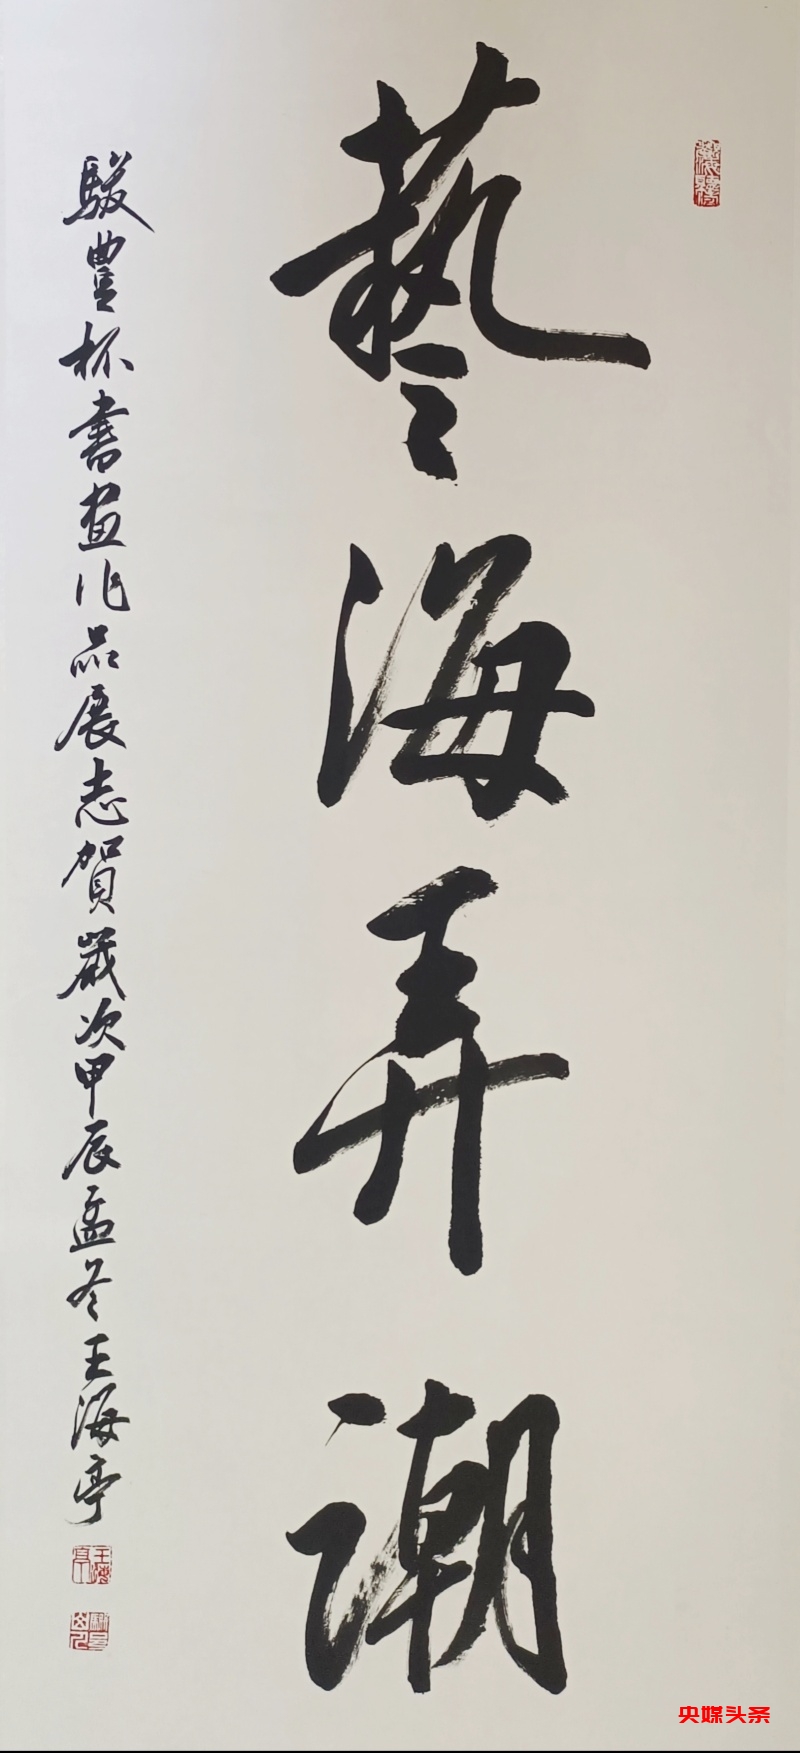 藝海弄潮
駿豐杯書画作品展志賀歲次甲辰孟冬王海亭
王海亭
央媒头条